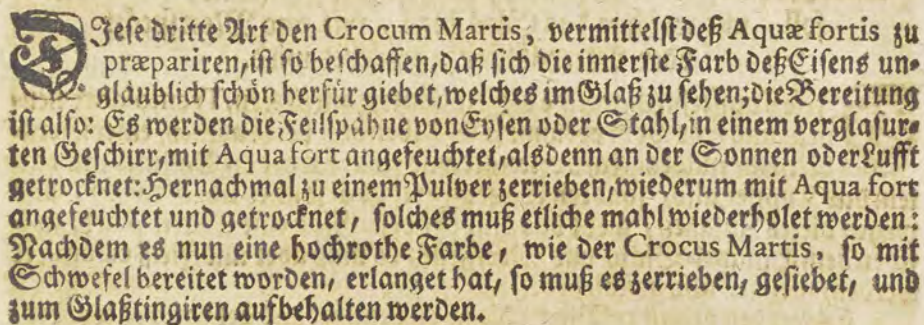 DJese dritte Art den Crocum Martis, vermittelst deß Aquæ fortis zu
præpariren/ ist so beschaffen/ daß sich die innerste Farb deß Eisens un-
gläublich schön herfür giebet/ welches im Glaß zu sehen; die Bereitung
ist also: Es werden die Feilspähne von Eysen oder Stahl/ in einem verglasur-
ten Geschirr/ mit Aqua fort angefeuchtet/ alsdenn an der Sonnen oder Lufft
getrocknet: Hernachmal zu einem Pulver zerrieben/ wiederum mit Aqua fort
angefeuchtet und getrocknet / solches muß etliche mahl wiederholet werden:
Nachdem es nun eine hochrothe Farbe / wie der Crocus Martis, so mit
Schwefel bereitet worden/ erlanget hat/ so muß es zerrieben/ gesiebet/ und
zum Glaßtingiren aufbehalten werden.